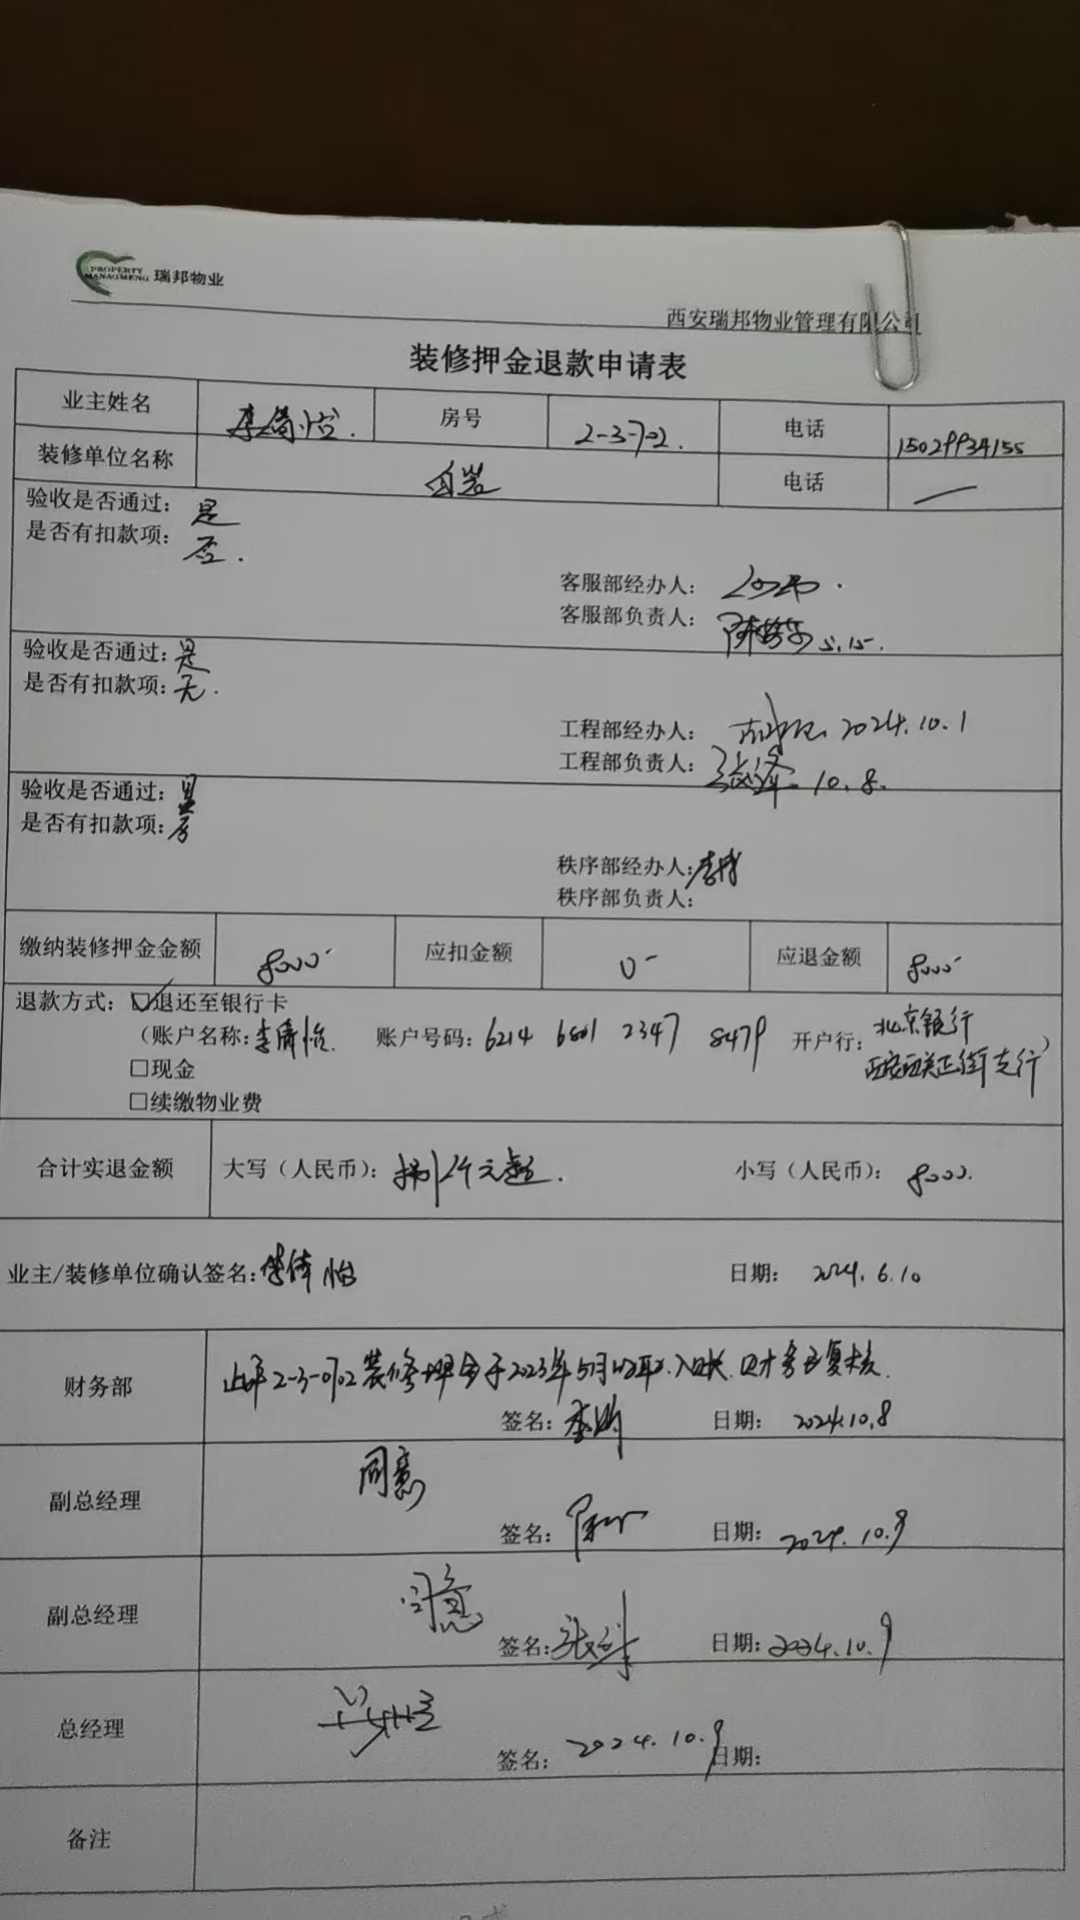 PROPERTY
MANAGMENG 瑞邦物业
西安瑞邦物业管理有限公司
装修押金退款申请表
业主姓名 李倩怡. 房号 2-3-702. 电话 15029934155
装修单位名称 自装 电话 —
验收是否通过: 是
是否有扣款项: 否.
客服部经办人:
客服部负责人: 5.15.
验收是否通过: 是
是否有扣款项: 无.
工程部经办人: 2024.10.1
工程部负责人: 10.8.
验收是否通过: 是
是否有扣款项:
秩序部经办人:
秩序部负责人:
缴纳装修押金金额 8000- 应扣金额 0- 应退金额 8000-
退款方式: ☑退还至银行卡
(账户名称: 李倩怡. 账户号码: 6214 6801 2347 8479 开户行: 北京银行
西安西关正街支行)
□现金
□续缴物业费
合计实退金额 大写(人民币): 捌仟元整. 小写(人民币): 8000.
业主/装修单位确认签名: 李倩怡 日期: 2024.6.10
财务部 2-3-0702装修押金于2023年5月收取.入账.财务已复核.
签名: 日期: 2024.10.8
副总经理 同意
签名: 日期: 2024.10.9
副总经理 同意
签名: 日期: 2024.10.9
总经理
签名: 2024.10.9 日期:
备注